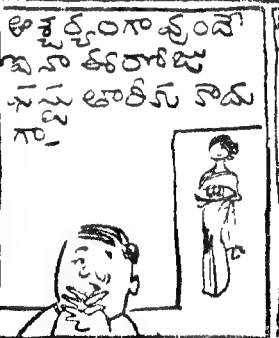 ఆశ్చర్యంగా వుందే
ఐనా ఈరోజు
ఫస్టు తారీఖు కాదు
గా_